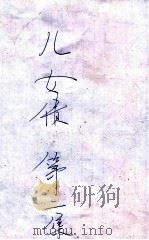 儿女债 第一集
研狗
mtoou.info